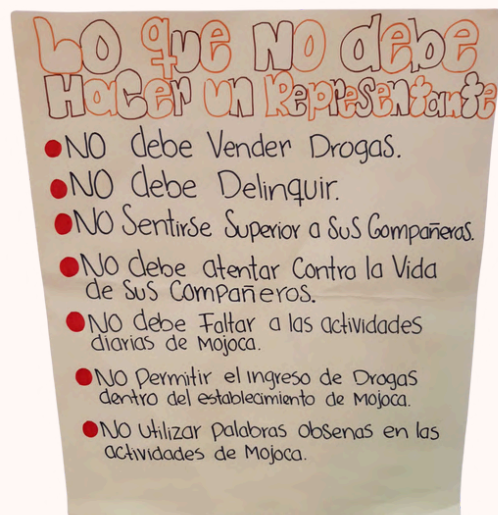 Lo que NO debe
Hacer un Representante
NO debe Vender Drogas.
NO debe Delinquir.
NO Sentirse Superior a Sus Compañeros.
NO debe atentar Contra la Vida
de Sus Compañeros.
NO debe Faltar a las actividades
diarias de Mojoca.
NO Permitir el ingreso de Drogas
dentro del establecimiento de Mojoca.
NO Utilizar palabras obsenas en las
actividades de Mojoca.